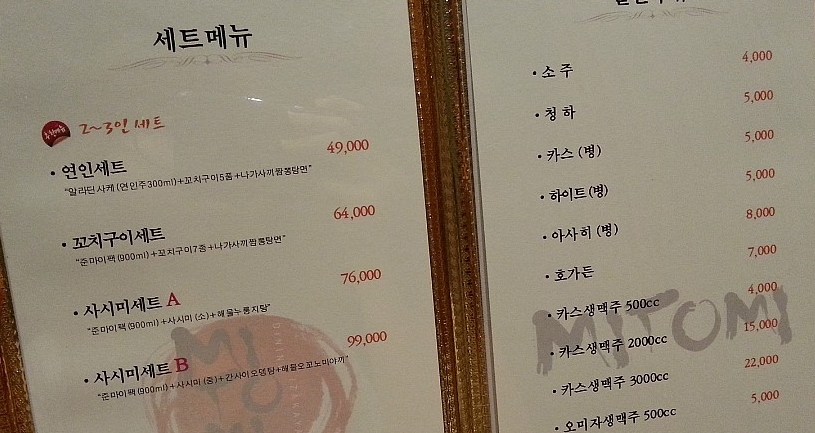 세트메뉴
추천메뉴
2~3인 세트
49,000
• 연인세트
"알라딘사케(연인주300ml)+꼬치구이5품+나가사끼짬뽕탕면"
64,000
• 꼬치구이세트
"준마이팩(900ml)+꼬치구이7종+나가사끼짬뽕탕면"
76,000
• 사시미세트 A
"준마이팩(900ml)+사시미(소)+해물누룽지탕"
99,000
• 사시미세트 B
"준마이팩(900ml)+사시미(중)+간사이오뎅탕+해물오꼬노미야끼"
MI
TO
MI
4,000
• 소주
5,000
• 청하
5,000
• 카스 (병)
5,000
• 하이트(병)
8,000
• 아사히 (병)
7,000
• 호가든
4,000
• 카스생맥주 500cc
15,000
• 카스생맥주 2000cc
22,000
• 카스생맥주 3000cc
5,000
• 오미자생맥주 500cc
MITOMI